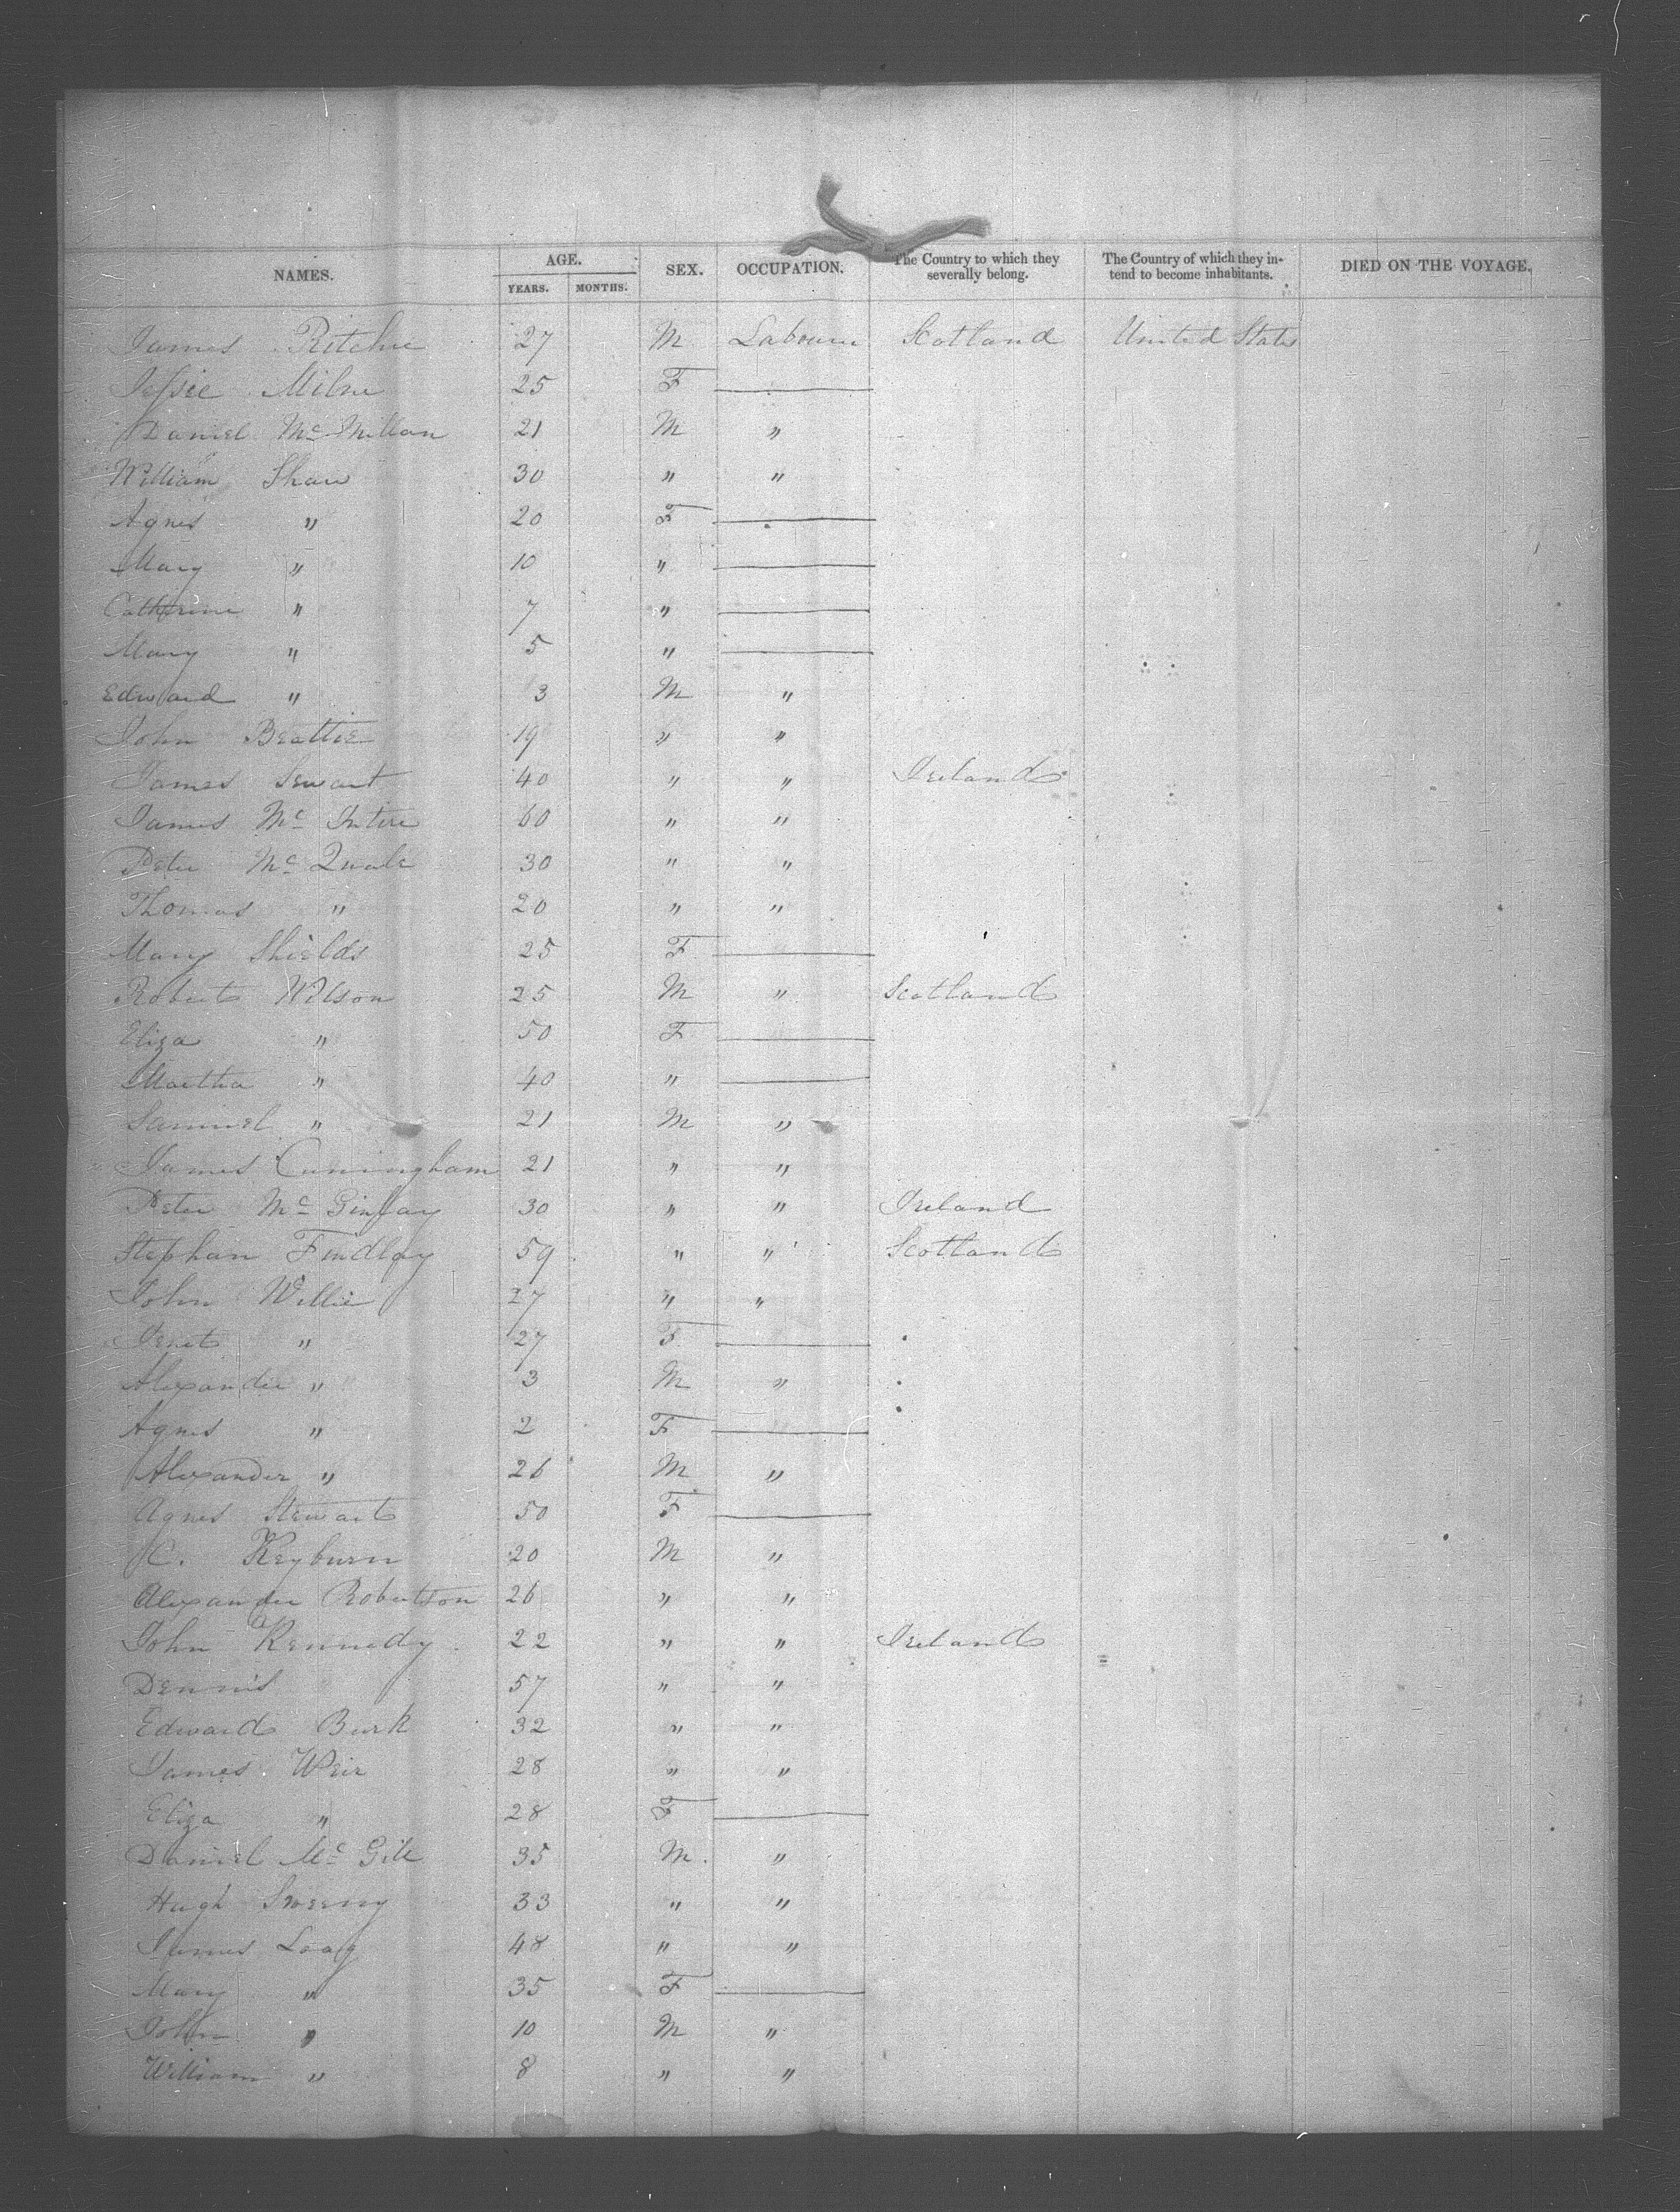 NAMES. AGE. SEX. OCCUPATION. The Country to which they severally belong. The Country of which they intend to become inhabitants. DIED ON THE VOYAGE.
YEARS. MONTHS.
James Ritchie 27 M Labourer Scotland United States
Jessie Milne 25 F
Daniel McMillan 21 M "
William Shaw 30 " "
Agnes " 20 F
Mary " 10 "
Catherine " 7 "
Mary " 5 "
Edward " 3 M "
John Beattie 19 " "
James Sewart 40 " " Ireland
James Mc Intire 60 " "
Peter Mc Quale 30 " "
Thomas " 20 " "
Mary Shields 25 F
Robert Wilson 25 M " Scotland
Eliza " 50 F
Martha " 40 "
Samuel " 21 M "
James Cuningham 21 " "
Peter Mc Ginlay 30 " " Ireland
Stephan Findlay 59 " " Scotland
John Willie 27 " "
Jenet " 27 F
Alexander " 3 M "
Agnes " 2 F
Alexander " 26 M "
Agnes Stewart 50 F
C. Keyburn 20 M "
Alexander Robertson 26 " "
John Kennedy 22 " " Ireland
Dennis 57 " "
Edward Burk 32 " "
James Weir 28 " "
Eliza " 28 F
Daniel Mc Gill 35 M. "
Hugh Sweeny 33 " "
James Loag 48 " "
Mary " 35 F
John " 10 M "
William " 8 " "